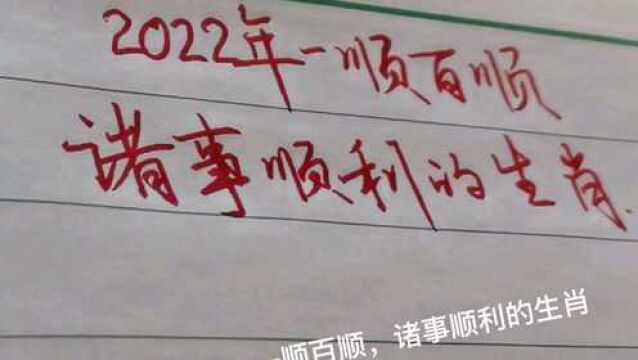 2022年一顺百顺
诸事顺利的生肖.
顺百顺，诸事顺利的生肖